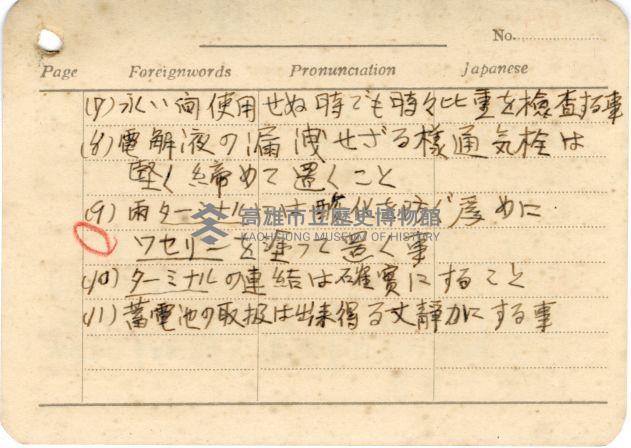 No.
Page Foreignwords Pronunciation Japanese
(7) 永い間使用せぬ時でも時々比重を検査する事
(8) 電解液の漏洩せざる様通気栓は
堅く締めて置くこと
(9) 両ターミナルには酸化を防ぐ為めに
ワセリンを塗って置く事
(10) ターミナルの連結は確實にすること
(11) 蓄電池の取扱は出来得る丈静かにする事
高雄市立歷史博物館
KAOHSIUNG MUSEUM OF HISTORY